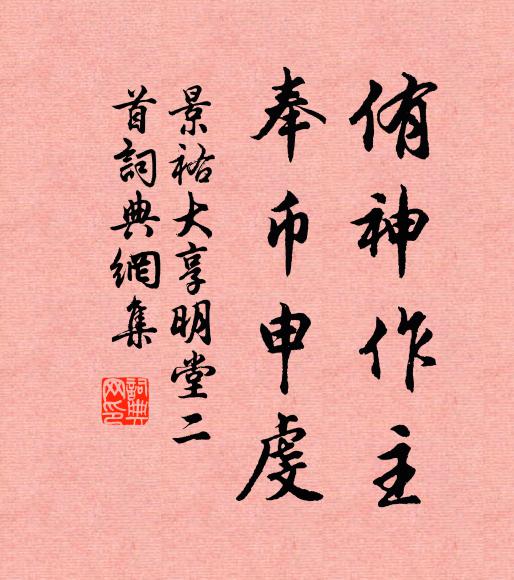 侑神作主
奉币申虔
景祐大享明堂二
首詞典網集
詞典网印